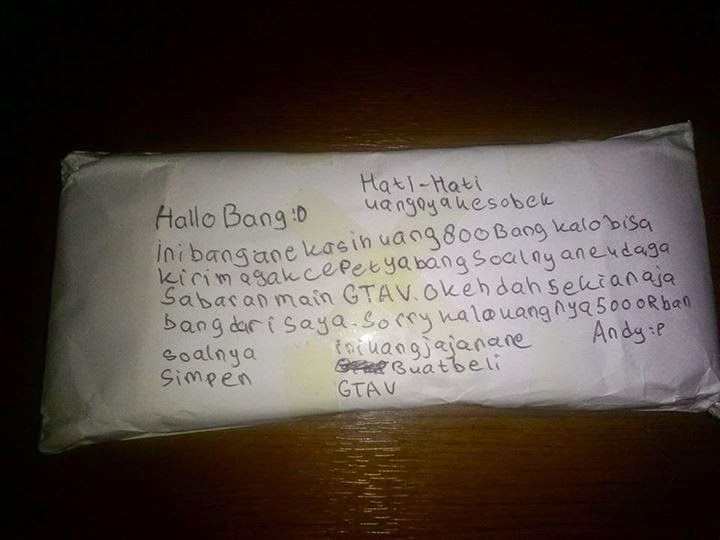 Hati-Hati
uangnya kesobek
Hallo Bang :D
ini bang ane kasih uang 800 Bang kalo bisa
kirim agak cepet ya bang soalnya ane udaga
Sabaran main GTAV. Okeh dah sekian aja
bang dari saya. Sorry kalo uangnya 5000Rban
soalnya ini uang jajan ane
Simpen Buat beli
GTAV
Andy :P